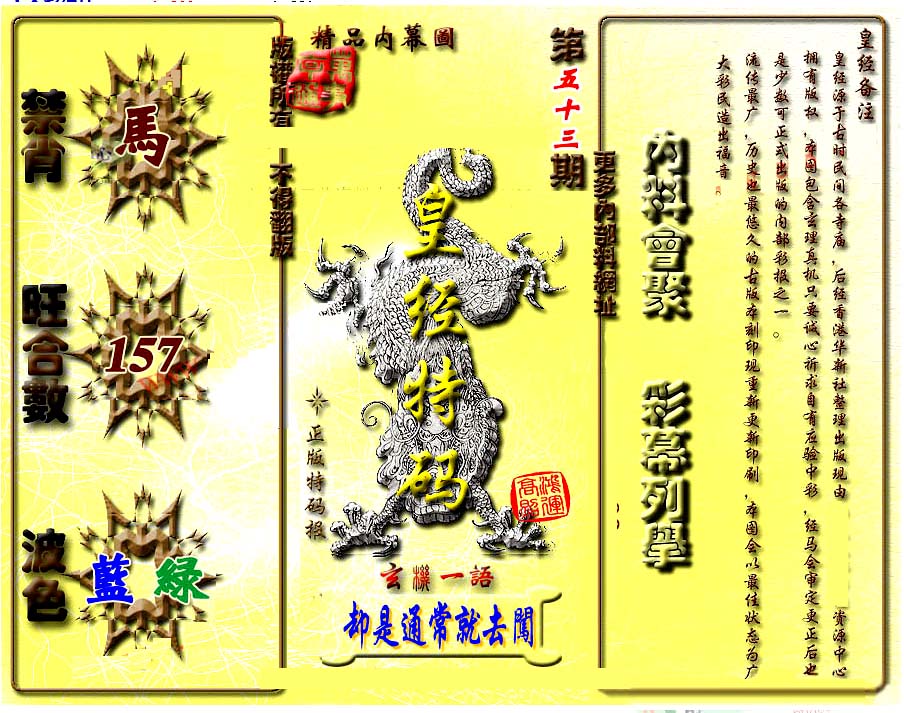 精品內幕圖
第五十三期
版權所有
不得翻版
更多內部料網址
禁肖
馬
旺合數
157
波色
藍 綠
皇经特码
正版特码报
鴻運高照
玄機一語
却是通常就去闖
內料會聚
彩幕列舉
皇经备注
皇经源于古时民间各寺庙，后经香港华新社整理出版现由 资源中心
拥有版权，本图包含玄理真机只要诚心祈求自有应验中彩，经马会审定更正后也
是少数可正式出版的内部彩报之一。
流传最广，历史也最悠久的古版本刻印现重新更新印刷，本图会以最佳状态为广
大彩民造出福音